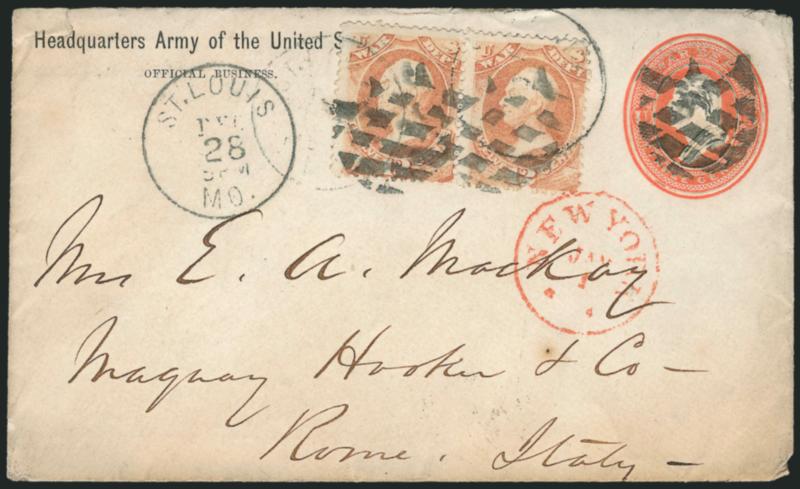 Headquarters Army of the United S
OFFICIAL BUSINESS.
ST. LOUIS
28
MO.
WAR DEPT.
WAR DEPT.
NEW YORK
JAN
1
Mrs E. A. Mackay
Maquay Hooker & Co –
Rome. Italy –